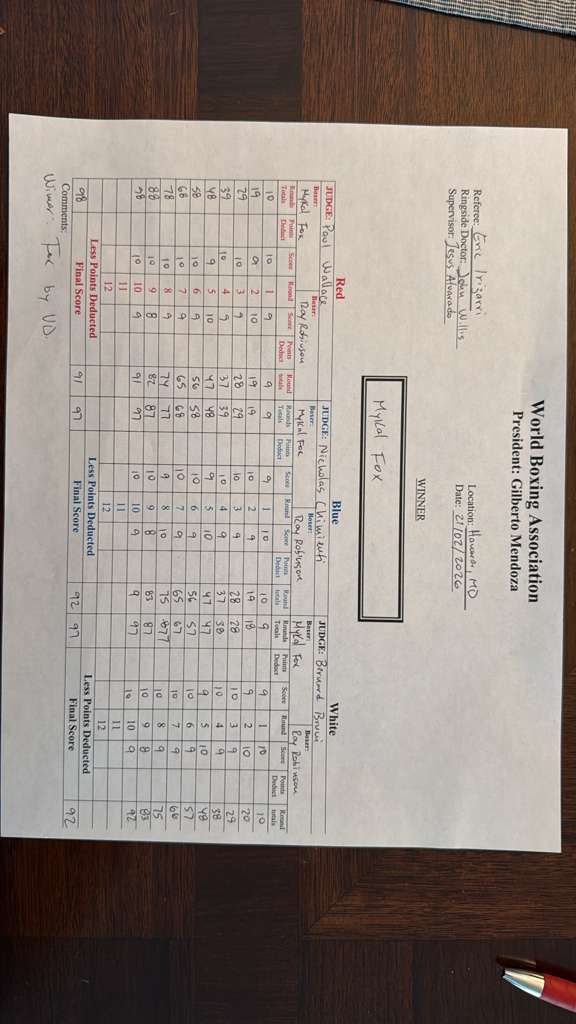 World Boxing Association
President: Gilberto Mendoza
Referee: Eric Irizarri
Location: Hanover, MD
Ringside Doctor: John Willis
Date: 21/02/2026
Supervisor: Jesus Alvarado
WINNER
Mykal Fox
Red Blue White
JUDGE: Paul Wallace JUDGE: Nicholas Chimienti JUDGE: Bernard Bruni
Boxer: Boxer: Boxer: Boxer: Boxer: Boxer:
Mykal Fox Ray Robinson Mykal Fox Ray Robinson Mykal Fox Ray Robinson
Rounds Totals Points Deduct Score Round Score Points Deduct Round totals Rounds Totals Points Deduct Score Round Score Points Deduct Round totals Rounds Totals Points Deduct Score Round Score Points Deduct Round totals
10 10 1 9 9 9 9 1 10 10 9 9 1 10 10
19 9 2 10 19 19 10 2 9 19 18 9 2 10 20
29 10 3 9 28 29 10 3 9 28 28 10 3 9 29
39 10 4 9 37 39 10 4 9 37 38 10 4 9 38
48 9 5 10 47 48 9 5 10 47 47 9 5 10 48
58 10 6 9 56 58 10 6 9 56 57 10 6 9 57
68 10 7 9 65 68 10 7 9 65 67 10 7 9 66
78 10 8 9 74 77 9 8 10 75 77 10 8 9 75
88 10 9 8 82 87 10 9 8 83 87 10 9 8 83
98 10 10 9 91 97 10 10 9 9 97 10 10 9 92
11 11 11
12 12 12
Less Points Deducted Less Points Deducted Less Points Deducted
98 Final Score 91 97 Final Score 92 97 Final Score 92
Comments:
Winner: Fox by UD.